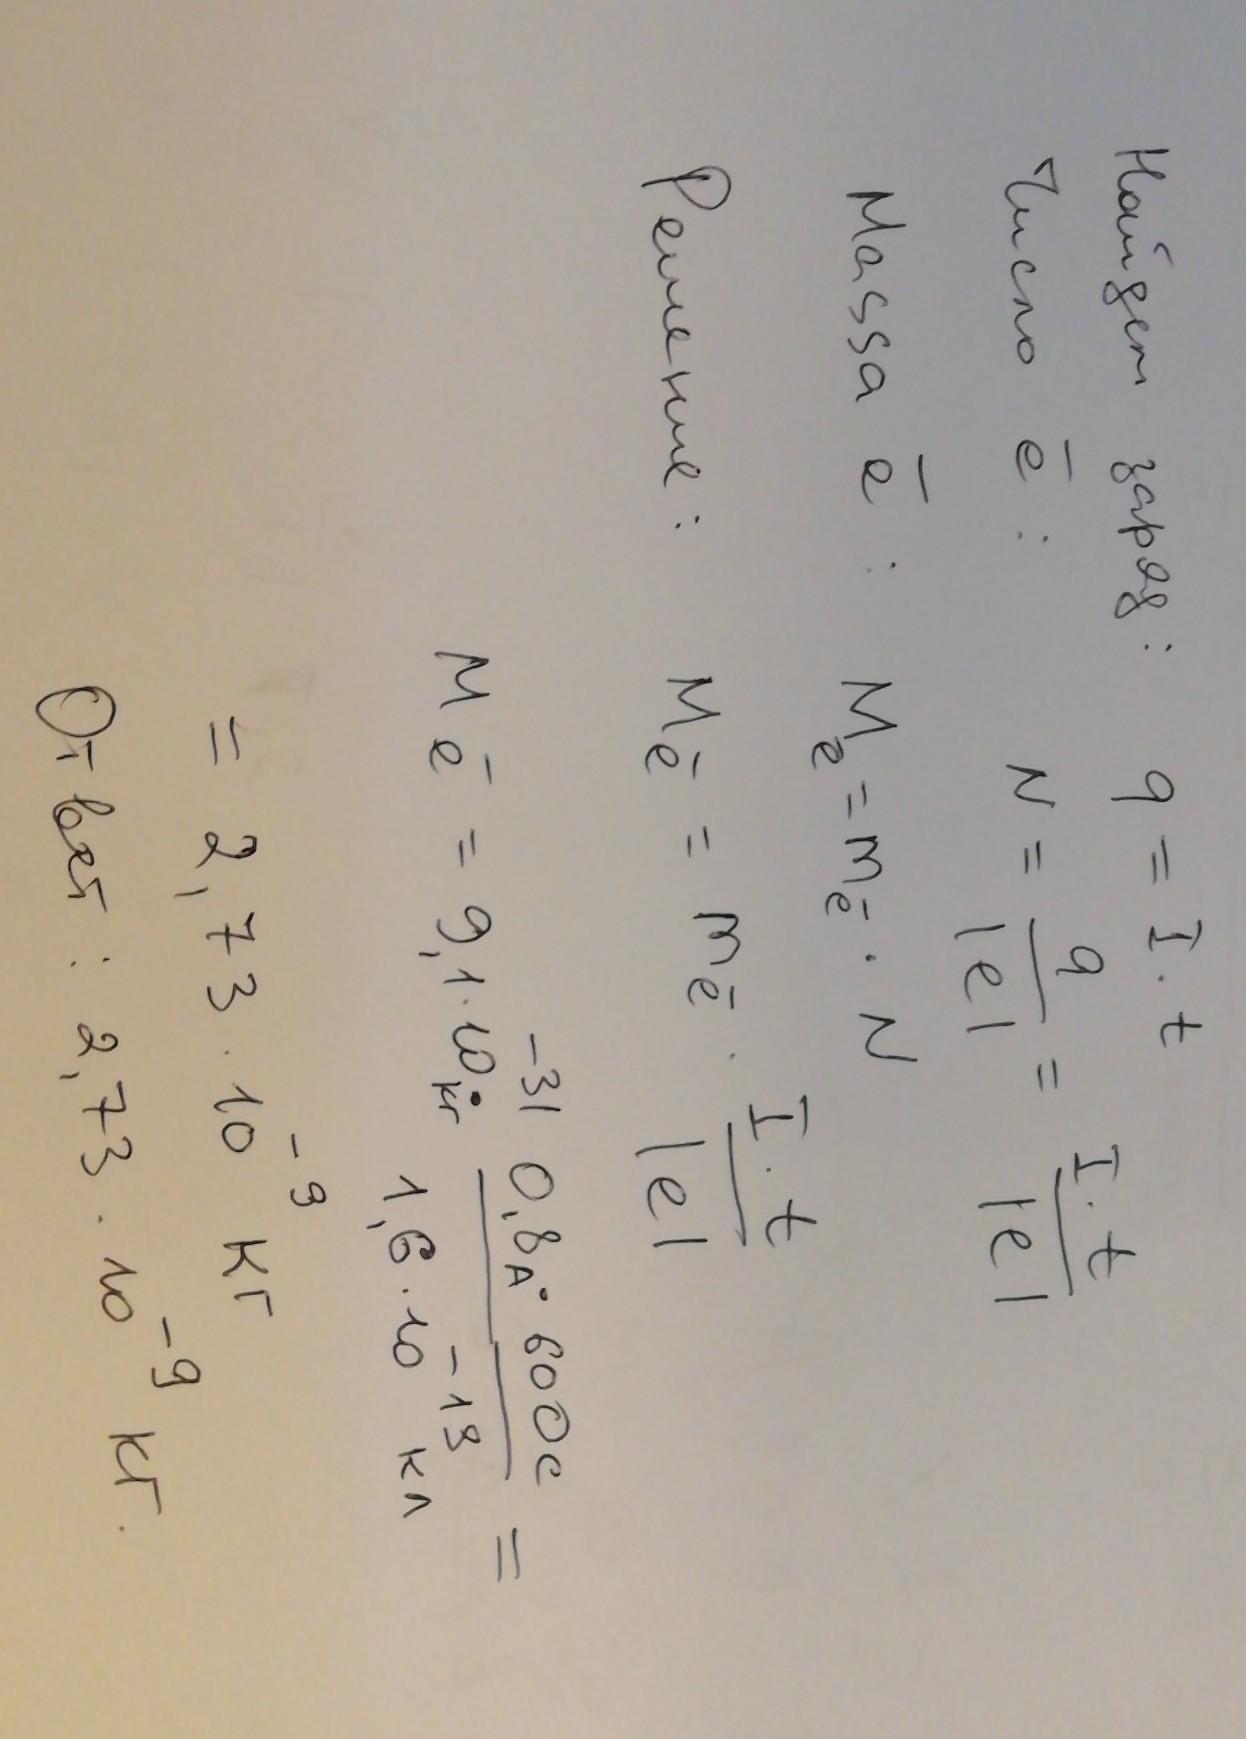 Найдем заряд: q = I · t
Число e̅ : N = q/|e| = I·t/|e|
Масsа e̅ : Mₑ̅ = mₑ̅ · N
Решение: Mₑ̅ = mₑ̅ · I·t/|e|
Mₑ̅ = 9,1·10⁻³¹ кг · 0,8А · 600с / 1,6·10⁻¹⁹ кл =
= 2,73 · 10⁻⁹ кг
Ответ: 2,73 · 10⁻⁹ кг.